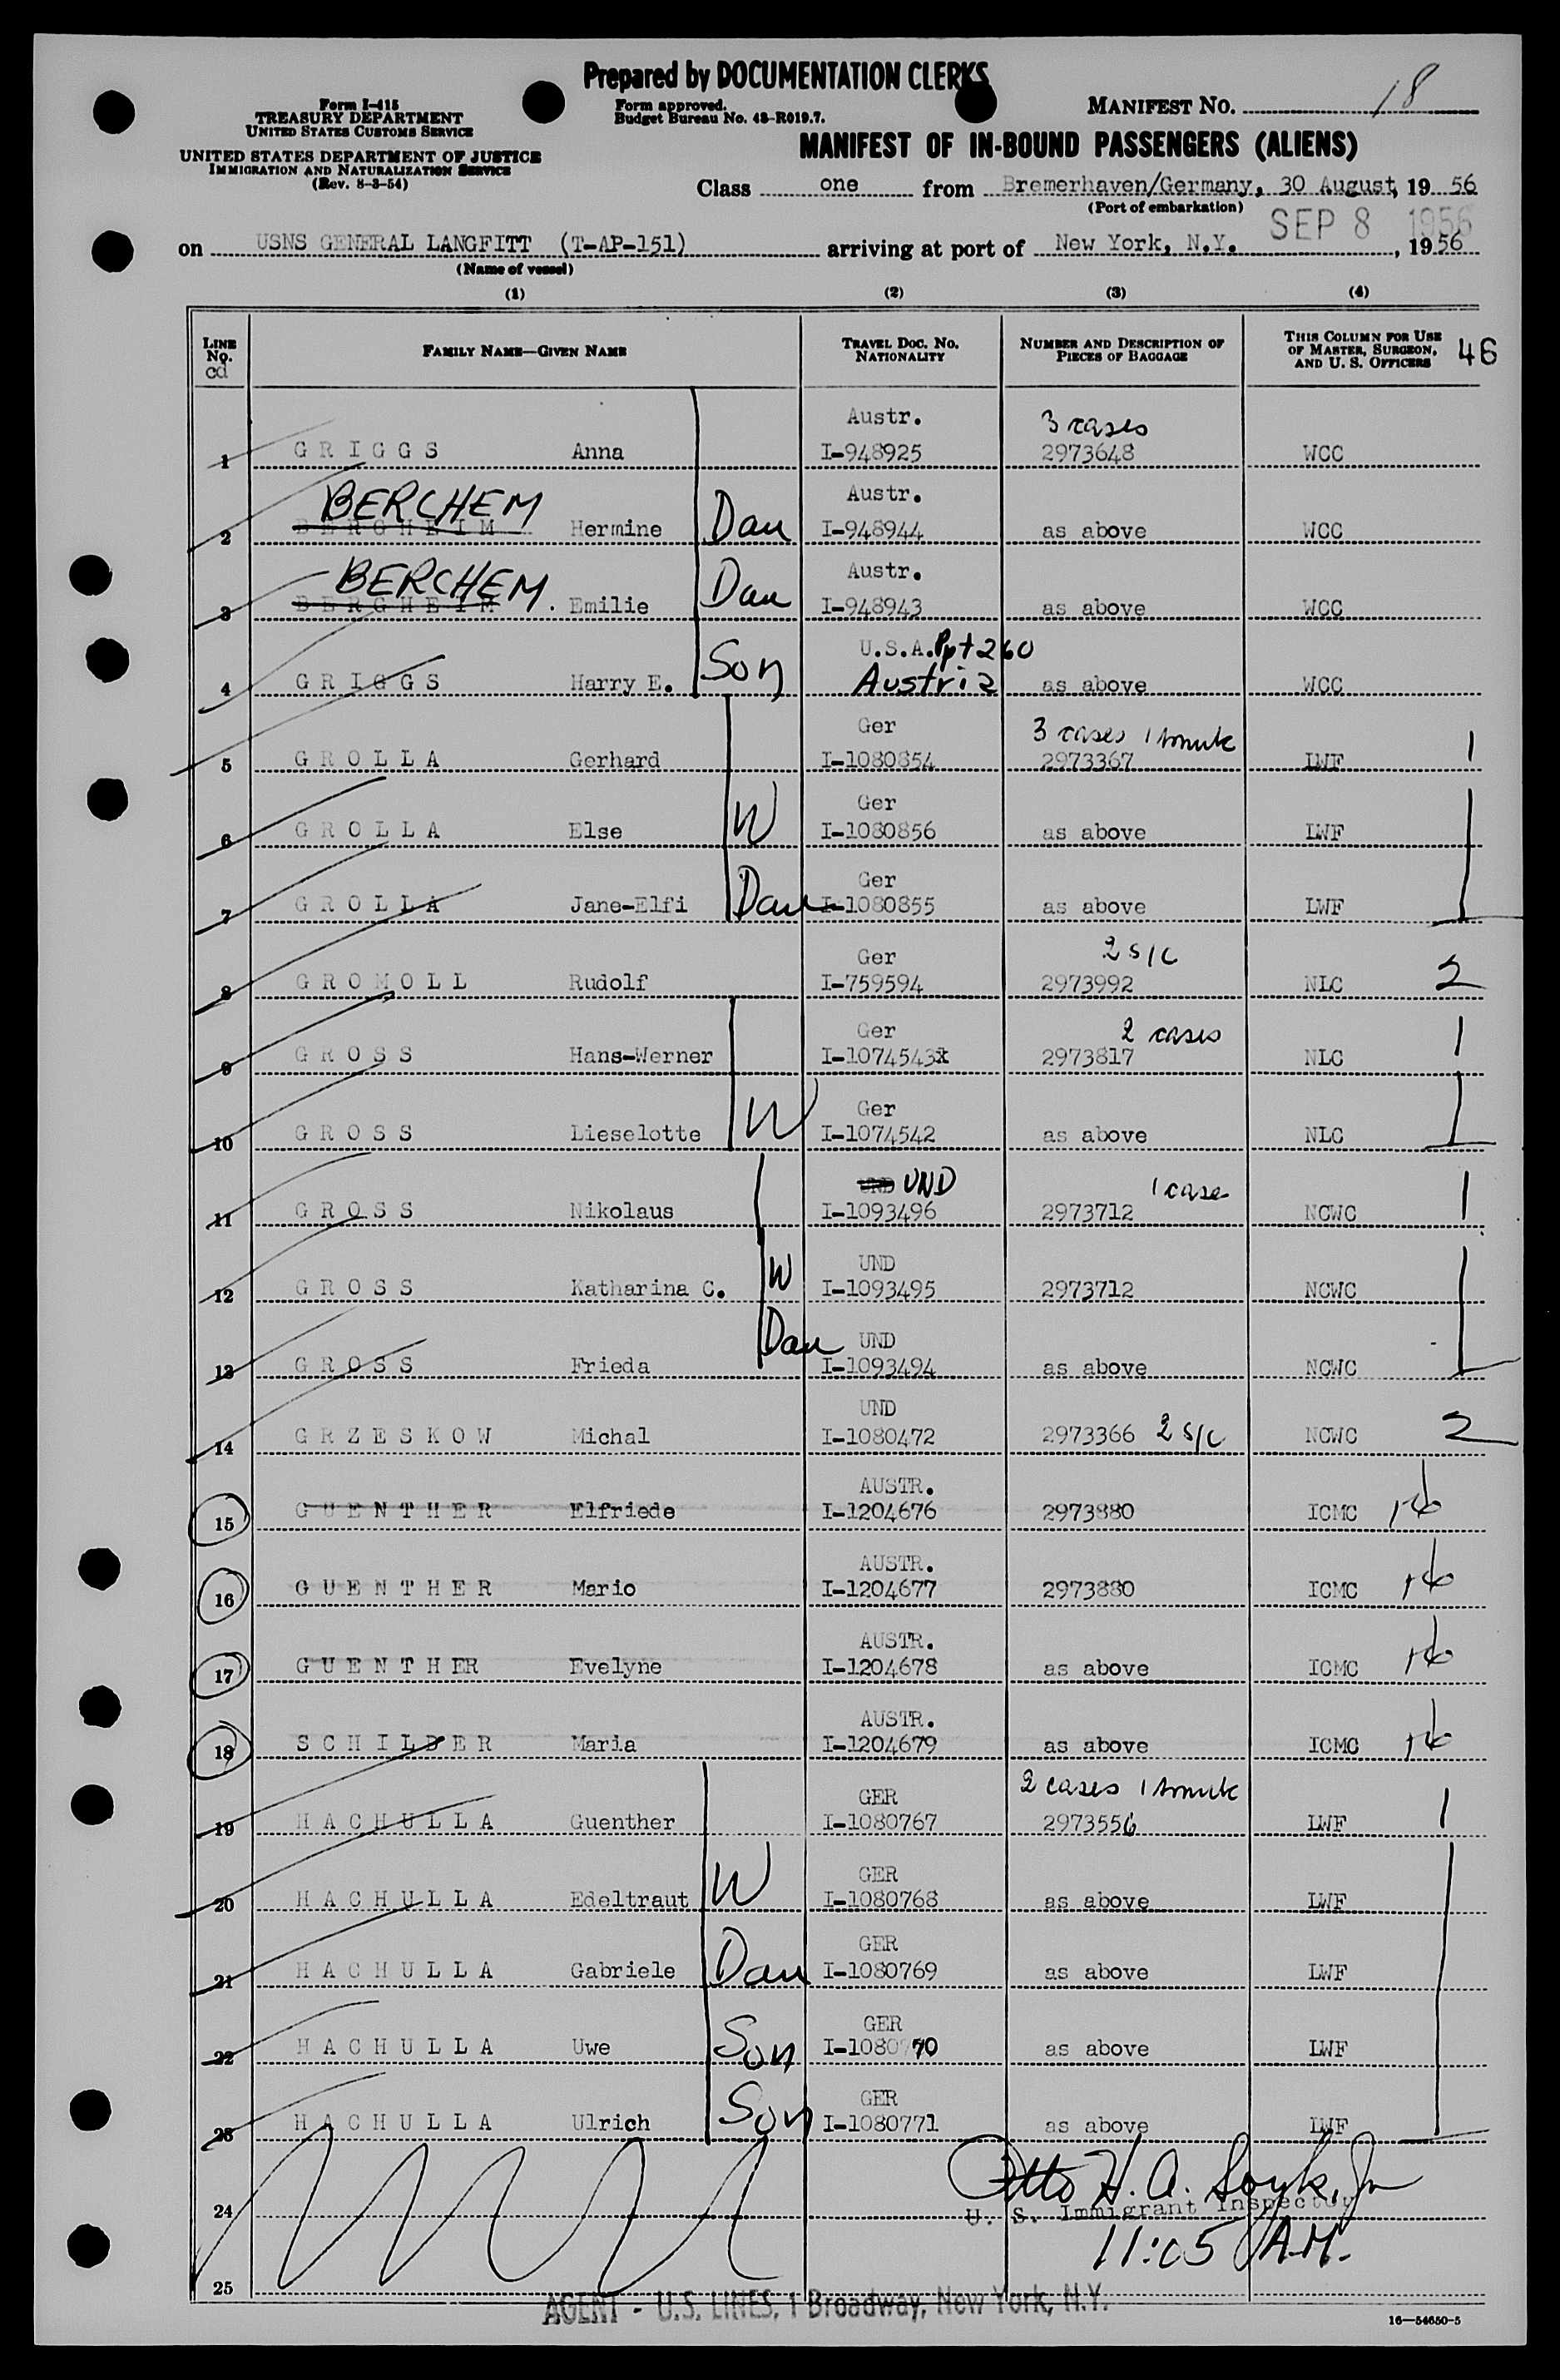 Prepared by DOCUMENTATION CLERKS
Form I-415
TREASURY DEPARTMENT
UNITED STATES CUSTOMS SERVICE
UNITED STATES DEPARTMENT OF JUSTICE
IMMIGRATION AND NATURALIZATION SERVICE
(Rev. 8-3-54)
Form approved.
Budget Bureau No. 43-R019.7.
MANIFEST NO. 18
MANIFEST OF IN-BOUND PASSENGERS (ALIENS)
Class one from Bremerhaven/Germany, 30 August, 19 56
(Port of embarkation)
SEP 8 1956
on USNS GENERAL LANGFITT (T-AP-151) arriving at port of New York, N.Y., 19 56
(Name of vessel)
(1) (2) (3) (4)
LINE No. cd FAMILY NAME—GIVEN NAME TRAVEL DOC. NO. NATIONALITY NUMBER AND DESCRIPTION OF PIECES OF BAGGAGE THIS COLUMN FOR USE OF MASTER, SURGEON, AND U. S. OFFICERS 46
Austr. 3 cases
1 GRIGGS Anna I-948925 2973648 WCC
BERCHEM Austr.
2 BERGHEIM Hermine Dau I-948944 as above WCC
BERCHEM Austr.
3 BERGHEIM Emilie Dau I-948943 as above WCC
U.S.A. Ppt 260
4 GRIGGS Harry E. Son Austria as above WCC
Ger 3 cases 1 trunk
5 GROLLA Gerhard I-1080854 2973367 LWF 1
Ger
6 GROLLA Else W I-1080856 as above LWF
Ger
7 GROLLA Jane-Elfi Dau I-1080855 as above LWF
Ger 2 s/c
8 GROMOLL Rudolf I-759594 2973992 NLC 2
Ger 2 cases
9 GROSS Hans-Werner I-1074543x 2973817 NLC 1
Ger
10 GROSS Lieselotte W I-1074542 as above NLC
UND 1 case
11 GROSS Nikolaus I-1093496 2973712 NCWC 1
UND
12 GROSS Katharina C. W I-1093495 2973712 NCWC
UND
13 GROSS Frieda Dau I-1093494 as above NCWC
UND
14 GRZESKOW Michal I-1080472 2973366 2 s/c NCWC 2
AUSTR.
15 GUENTHER Elfriede I-1204676 2973880 ICMC
AUSTR.
16 GUENTHER Mario I-1204677 2973880 ICMC
AUSTR.
17 GUENTHER Evelyne I-1204678 as above ICMC
AUSTR.
18 SCHILDER Maria I-1204679 as above ICMC
GER 2 cases 1 trunk
19 HACHULLA Guenther I-1080767 2973556 LWF 1
GER
20 HACHULLA Edeltraut W I-1080768 as above LWF
GER
21 HACHULLA Gabriele Dau I-1080769 as above LWF
GER
22 HACHULLA Uwe Son I-1080770 as above LWF
GER
23 HACHULLA Ulrich Son I-1080771 as above LWF
Otto H. A. Soyk, Jr
24 U. S. Immigrant Inspector
11:05 A.M.
25
AGENT - U.S. LINES, 1 Broadway, New York, N.Y.
16—54650-5